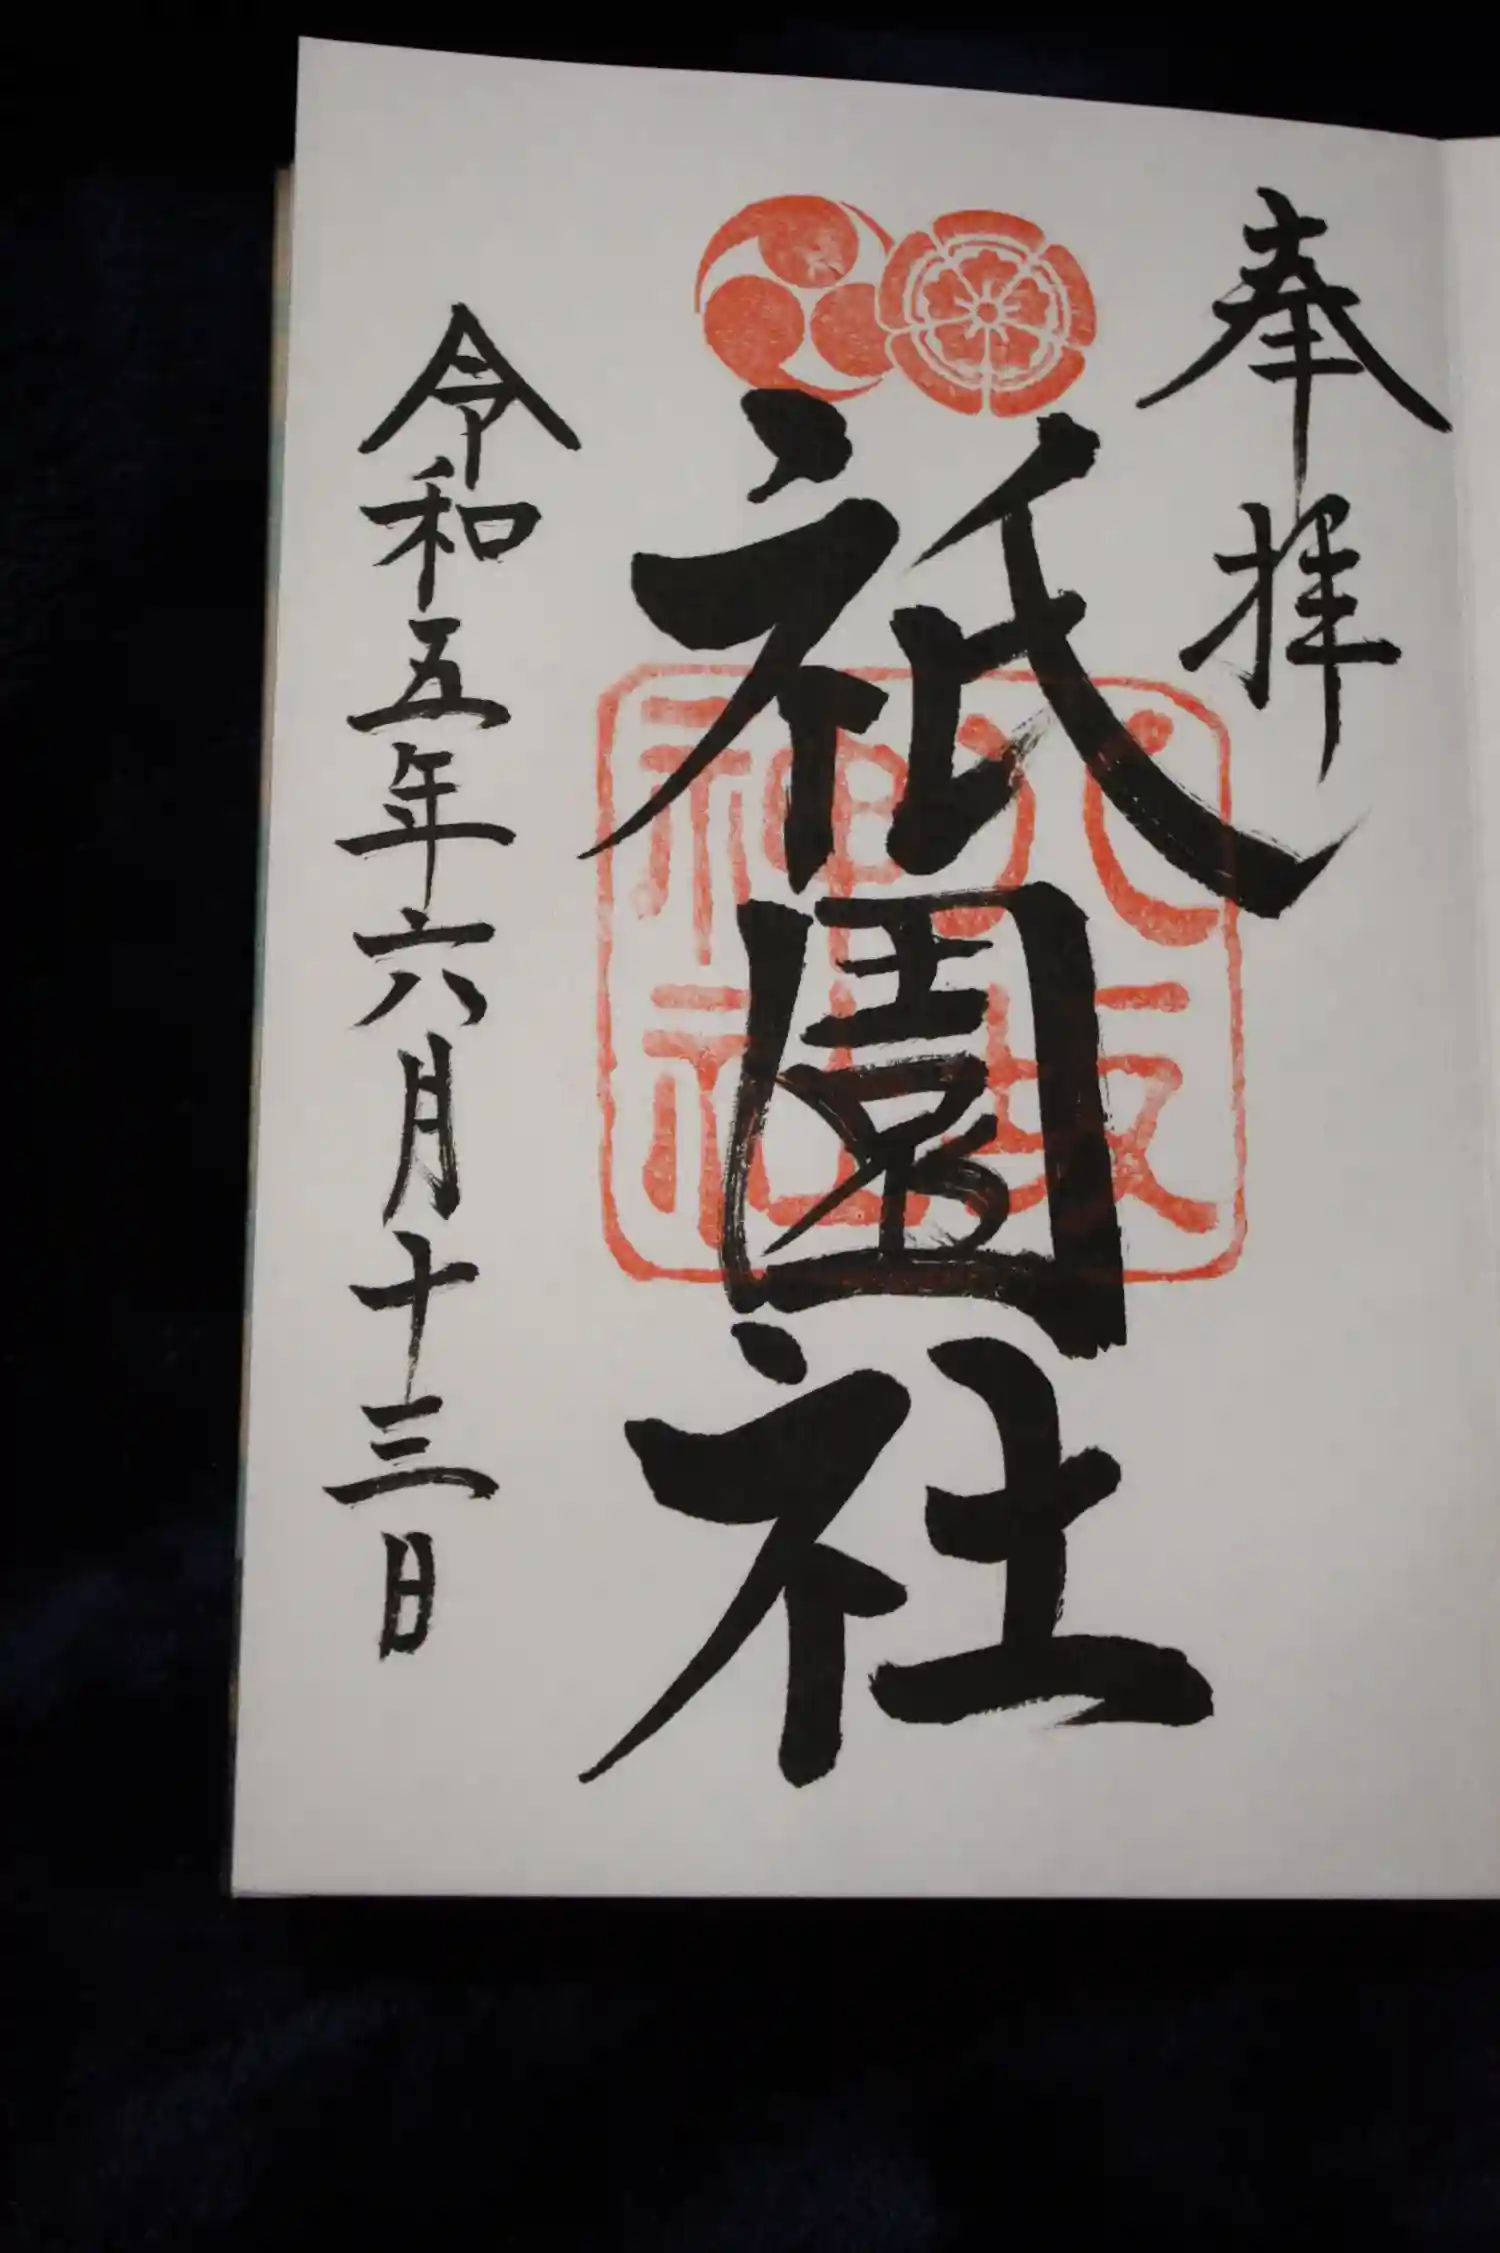 奉拝
祇園社
八坂神社
令和五年六月十三日